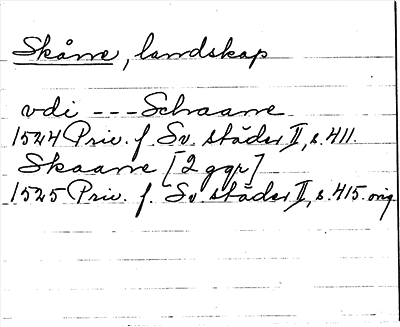 Skåne, landskap
vdi --- Schaane
1524 Priv. f. Sv. städer II, s. 411.
Skaane [2 ggr]
1525 Priv. f. Sv. städer II, s. 415. orig.